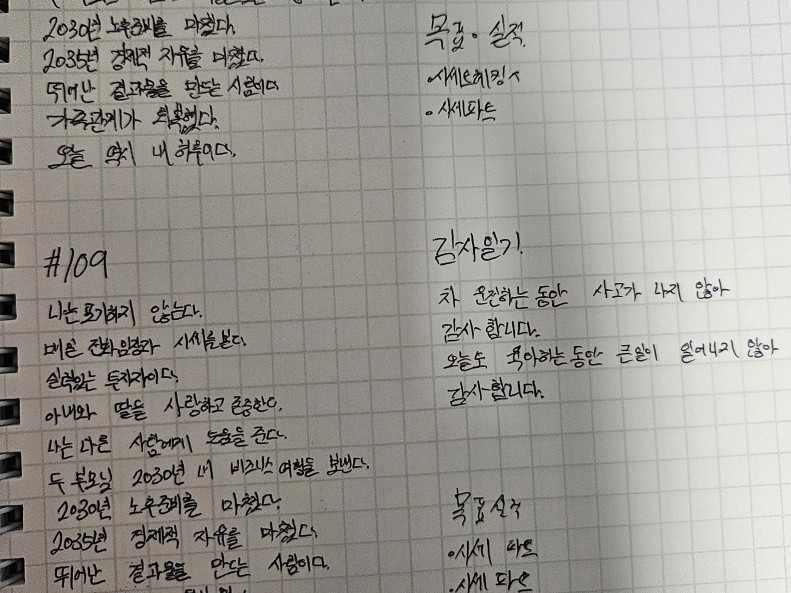 2030년 노후준비를 마쳤다.
2035년 경제적 자유를 마쳤다.
뛰어난 결과물을 만드는 사람이다.
가족관계가 회복했다.
오늘 역시 내 하루이다.
목표 · 실적
· 시세
· 시세파트
#109
나는 포기하지 않는다.
매일 전화임장과 시세를 본다.
실력있는 투자자이다.
아내와 딸을 사랑하고 존중한다.
나는 다른 사람에게 도움을 준다.
두 부모님 2030년 내 비즈니스 여행을 보낸다.
2030년 노후준비를 마쳤다.
2035년 경제적 자유를 마쳤다.
뛰어난 결과물을 만드는 사람이다.
감사일기.
차 운전하는 동안 사고가 나지 않아
감사합니다.
오늘도 육아하는 동안 큰일이 일어나지 않아
감사합니다.
목표실적
· 시세 파트
· 시세 파트